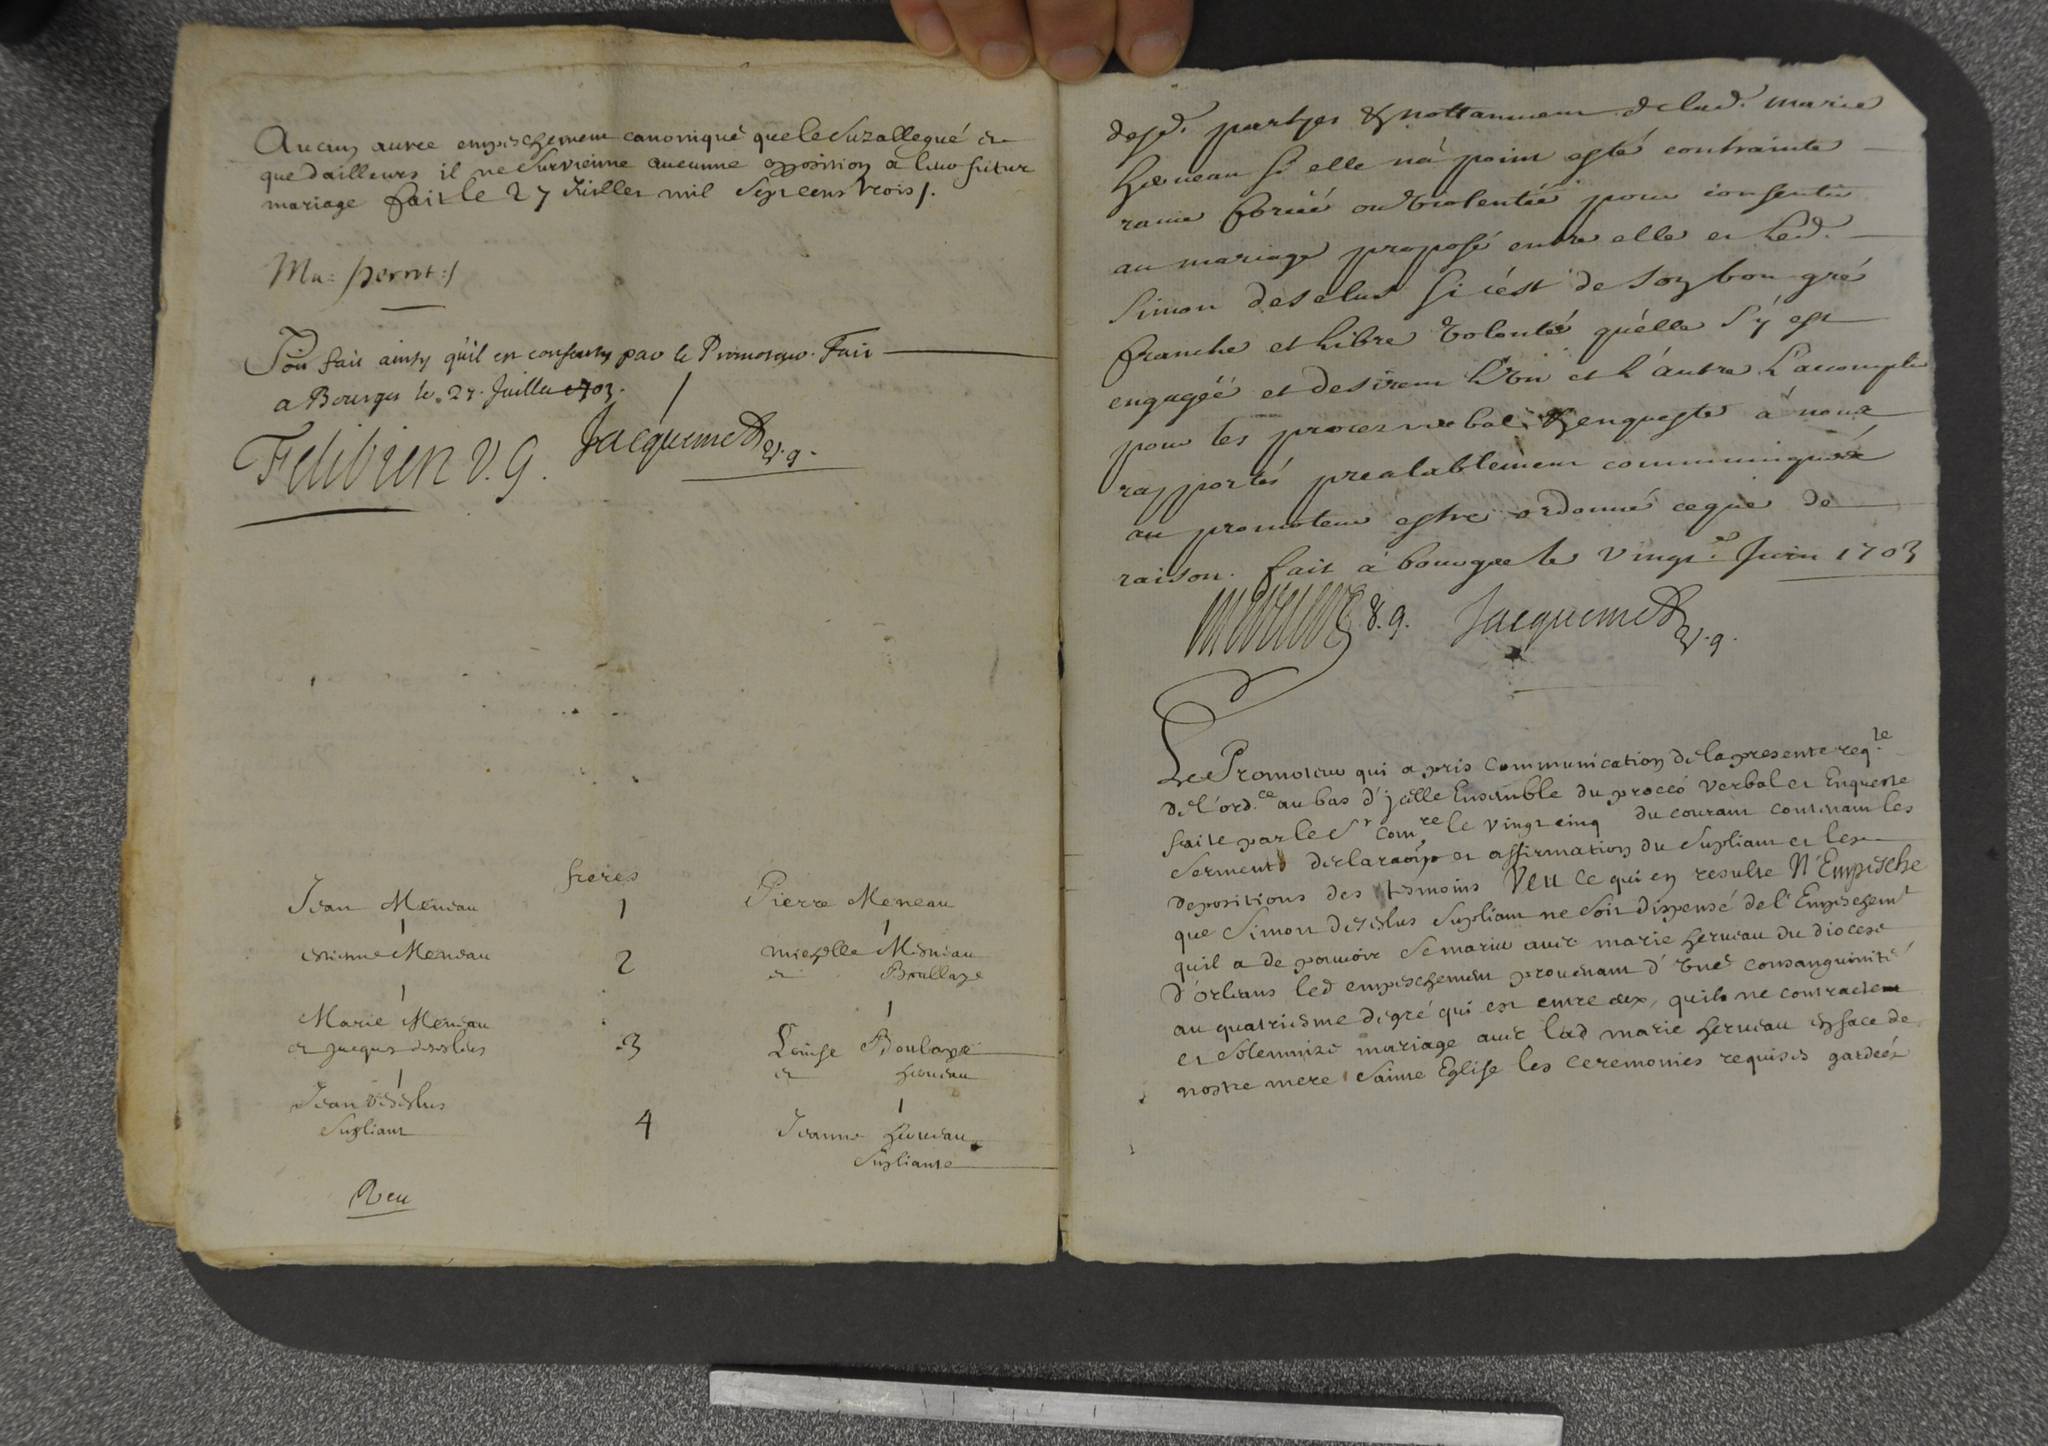 Aucun autre empeschement canonique que le suzallegué et
que dailleurs il ne survienne aucunne oposition a leur futur
mariage fait le 27 Juillet mil sept cens trois /.
Ma: perrot :/
Soit fait ainsy qu'il est consenty par le Promoteur. Fait
a Bourges le 27. Juillet 1703.
Felibien V. G. Jacquemet v. g.
freres
Jean Meneau 1 Pierre Meneau
etienne Meneau 2 Meneau
et Boullaye
Marie Meneau
et Jacques deselus 3 Louise Boulaye
et herveau
Jean deselus
supliant 4 Jeanne herveau
supliante
Veu
desd. partyes & nottamment de lad. marie
herveau si elle na point esté contrainte
ravie forcée ou violentée pour consentir
au mariage proposé entre elle et led.
Simon deselus si c'est de son bon gré
franche et libre volonté qu'elle s'y est
engagéé et desirent l'un et l'autre l'accomplir
pour les procez verbal & enqueste à nous
rapportés prealablement communiqués
au promoteur estre ordonné ce que de
raison. fait à bourges le vingt.e Juin 1703
v. g. Jacquemet v. g.
Le Promoteur qui a pris communication de la presente req.te
de l'ord.ce au bas d'jcelle Ensemble du procés verbal et Enqueste
faite par le Sr Comre le vingt cinq du courant contenant les
serments declaraõn et affirmation du supliant et les
depositions des tesmoins Veu ce qui en resulte N'Empesche
que Simon deselus supliant ne soit dispensé de l'Empeschemt
quil a de pouvoir se marier avec marie herveau du diocese
d'orleans led empeschement provenant d'une consanguinité
au quatriesme degré qui est entre eux, quils ne contractent
et solemnize mariage avec lad marie herveau en face de
nostre mere sainte Eglise les ceremonies requises gardées